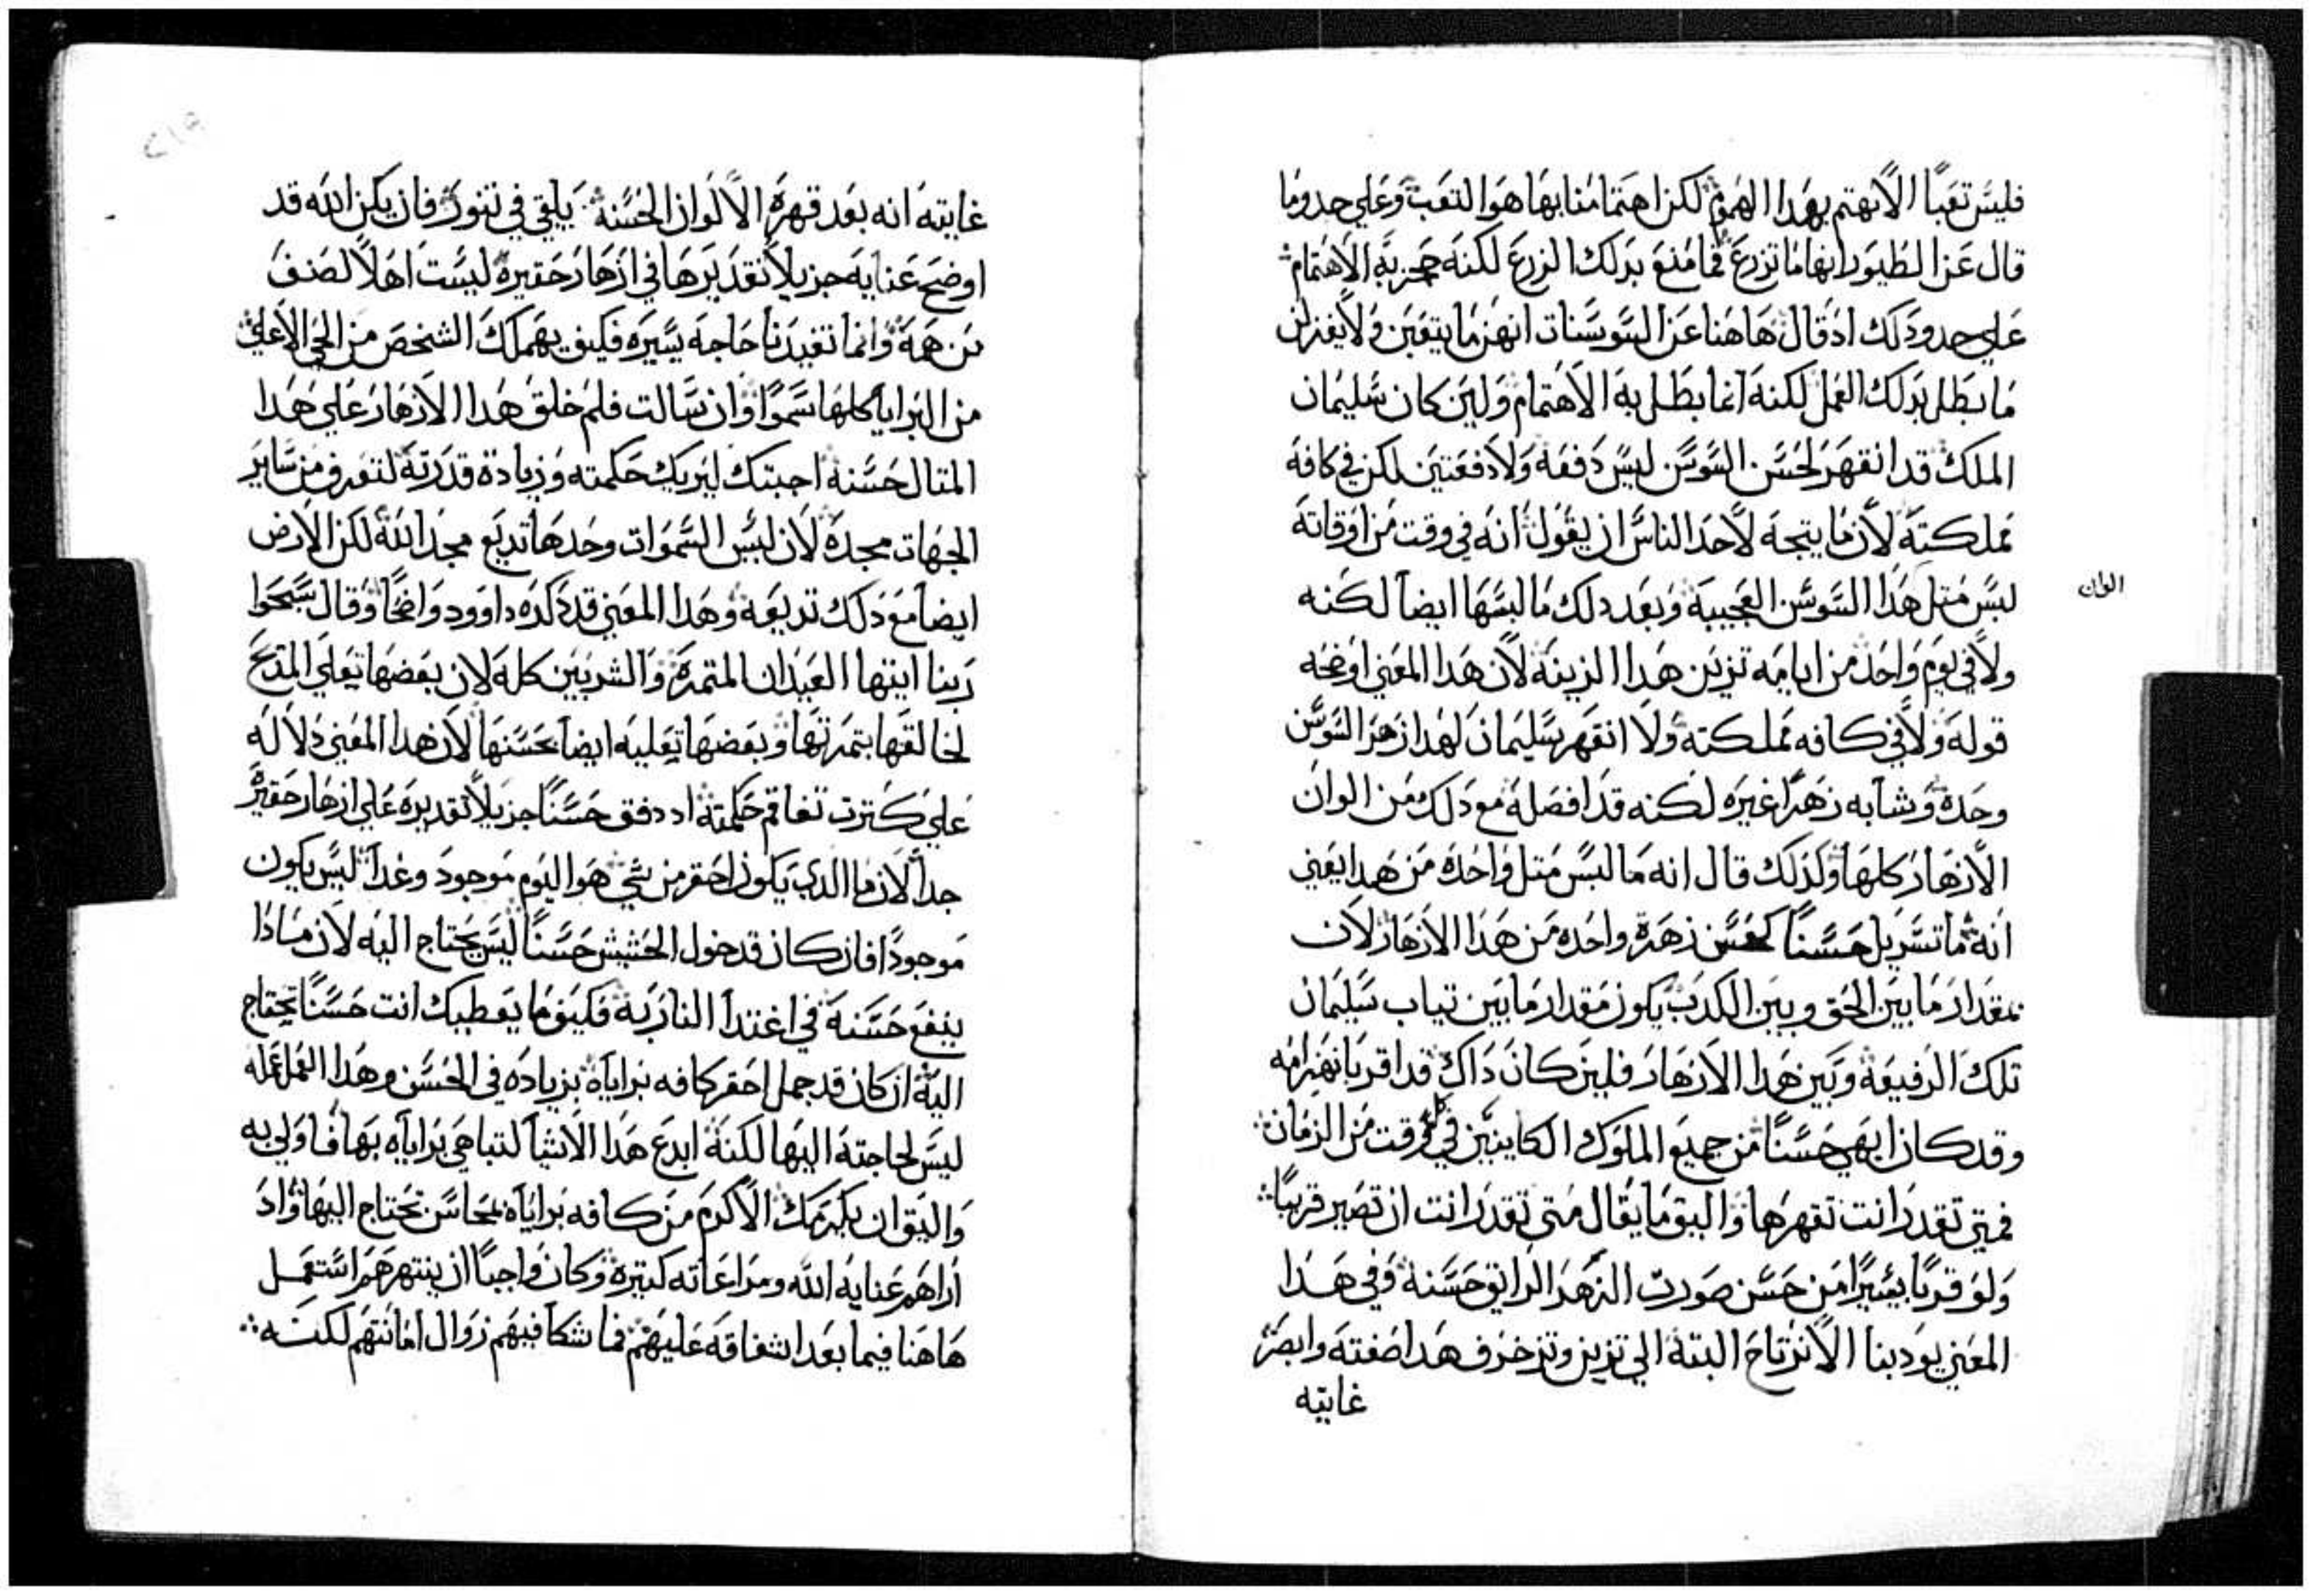 فليس تعبًا الا نهتم بهدا الهموم لكن اهتمامنا بها هوا لتعب وعلي حدوما
قال عن الطيور انها ما تزرع فما منع بدلك الزرع لكنه حجز به الاهتمام
علي حدو دلك اد قال هاهنا عن السوسنات انهن ما يتعبن ولا يغزلن
ما بطل بدلك العمل لكنه انما بطل به الاهتمام ولين كان سليمان
الملك قد انقهر لحسن السوسن ليس دفعه ولا دفعتين لكن في كافة
مملكته لان ما يتجه لاحد الناس ان يقول انه في وقت من اوقاته
لبس متل هدا السوسن العجيبة وبعد دلك ما لبسها ايضا لكنه
الوان
ولا في يوم واحد من ايامه تزين هدا الزينة لان هدا المعني اوضحه
قوله ولا في كافه مملكته ولا انقهر سليمان لهدا زهر السوسن
وحدة وشابه زهرًا غيره لكنه قد افصله مع دلك من الوان
الازهار كلها ولدلك قال انه ما لبس متل واحدة من هدا يعني
انه ما تسربل حسنًا كحسن زهرة واحده من هدا الازهار لان
بمقدار ما بين الحق وبين الكدب يكون مقدار ما بين تياب سليمان
تلك الرفيعة وبين هدا الازهار فلين كان داك قد اقر بانهزامه
وقد كان ابهي حسنًا من جميع الملوك الكاينين في كل وقت من الزمان
فمتي تقدر انت تقهرها واليق ما يقال متي تقدر انت ان تصير قريبًا
ولو قربًا يسيرًا من حسن صورت الزهر الرايق حسنة وفي هدا
المعني يودبنا الا نرتاح البتة الي تزين وتزخرف هدا صفته وابصر
غايته
غايته انه بعد قهرة الالوان الحسنة يلقي في تنور فان يكن الله قد
اوضح عنايه جزيلا تقديرها في ازهار حقيرة ليست اهلًا لصنف
من همة وانما تفيدنا حاجه يسيره فكيف يهملك الشخص من الحي الاعلي
من البرايا كلها سموًا وان سالت فلم خلق هدا الازهار علي هدا
المتال حسنة اجبتك ليريك حكمته وزيادة قدرته لتعرف من ساير
الجهات مجدة لان ليس السموات وحدها تديع مجد الله لكن الارض
ايضا مع دلك تديعه وهدا المعني قد دكره داوود واضحًا وقال سبحوا
ربنا ايتها العيدان المتمرة والشربين كله لان بعضها تعلي المدح
لخالقها بتمرتها وبعضها تعليه ايضا بحسنها لان هدا المعني دلاله
علي كترت تفاقم حكمته اد دفق حسنًا جزيلًا تقديره علي ازهار حقيرة
جدا لان ما الدي يكون احقر من شي هو اليوم موجود وغدا ليس يكون
موجودًا فان كان قد خول الحشيش حسنًا ليس يحتاج اليه لان مادا
ينفع حسنة في اغتدا النار به فكيف ما يعطيك انت حسنًا تحتاج
اليه ان كان قد جمل احقر كافه براياة بزياده في الحسن وهدا العمل عمله
ليس لحاجته اليها لكنه ابدع هدا الاشيا لتباهي براياه بها فاولي به
واليق ان يكرمك الاكرم من كافه براياة بمحاسن تحتاج اليها واد
اراهم عنايه الله ومراعاته كبيرة وكان واجبًا ان ينتهرهم استعمل
هاهنا فيما بعد اشفاقه عليهم فما شكا فيهم زوال امانتهم لكنه